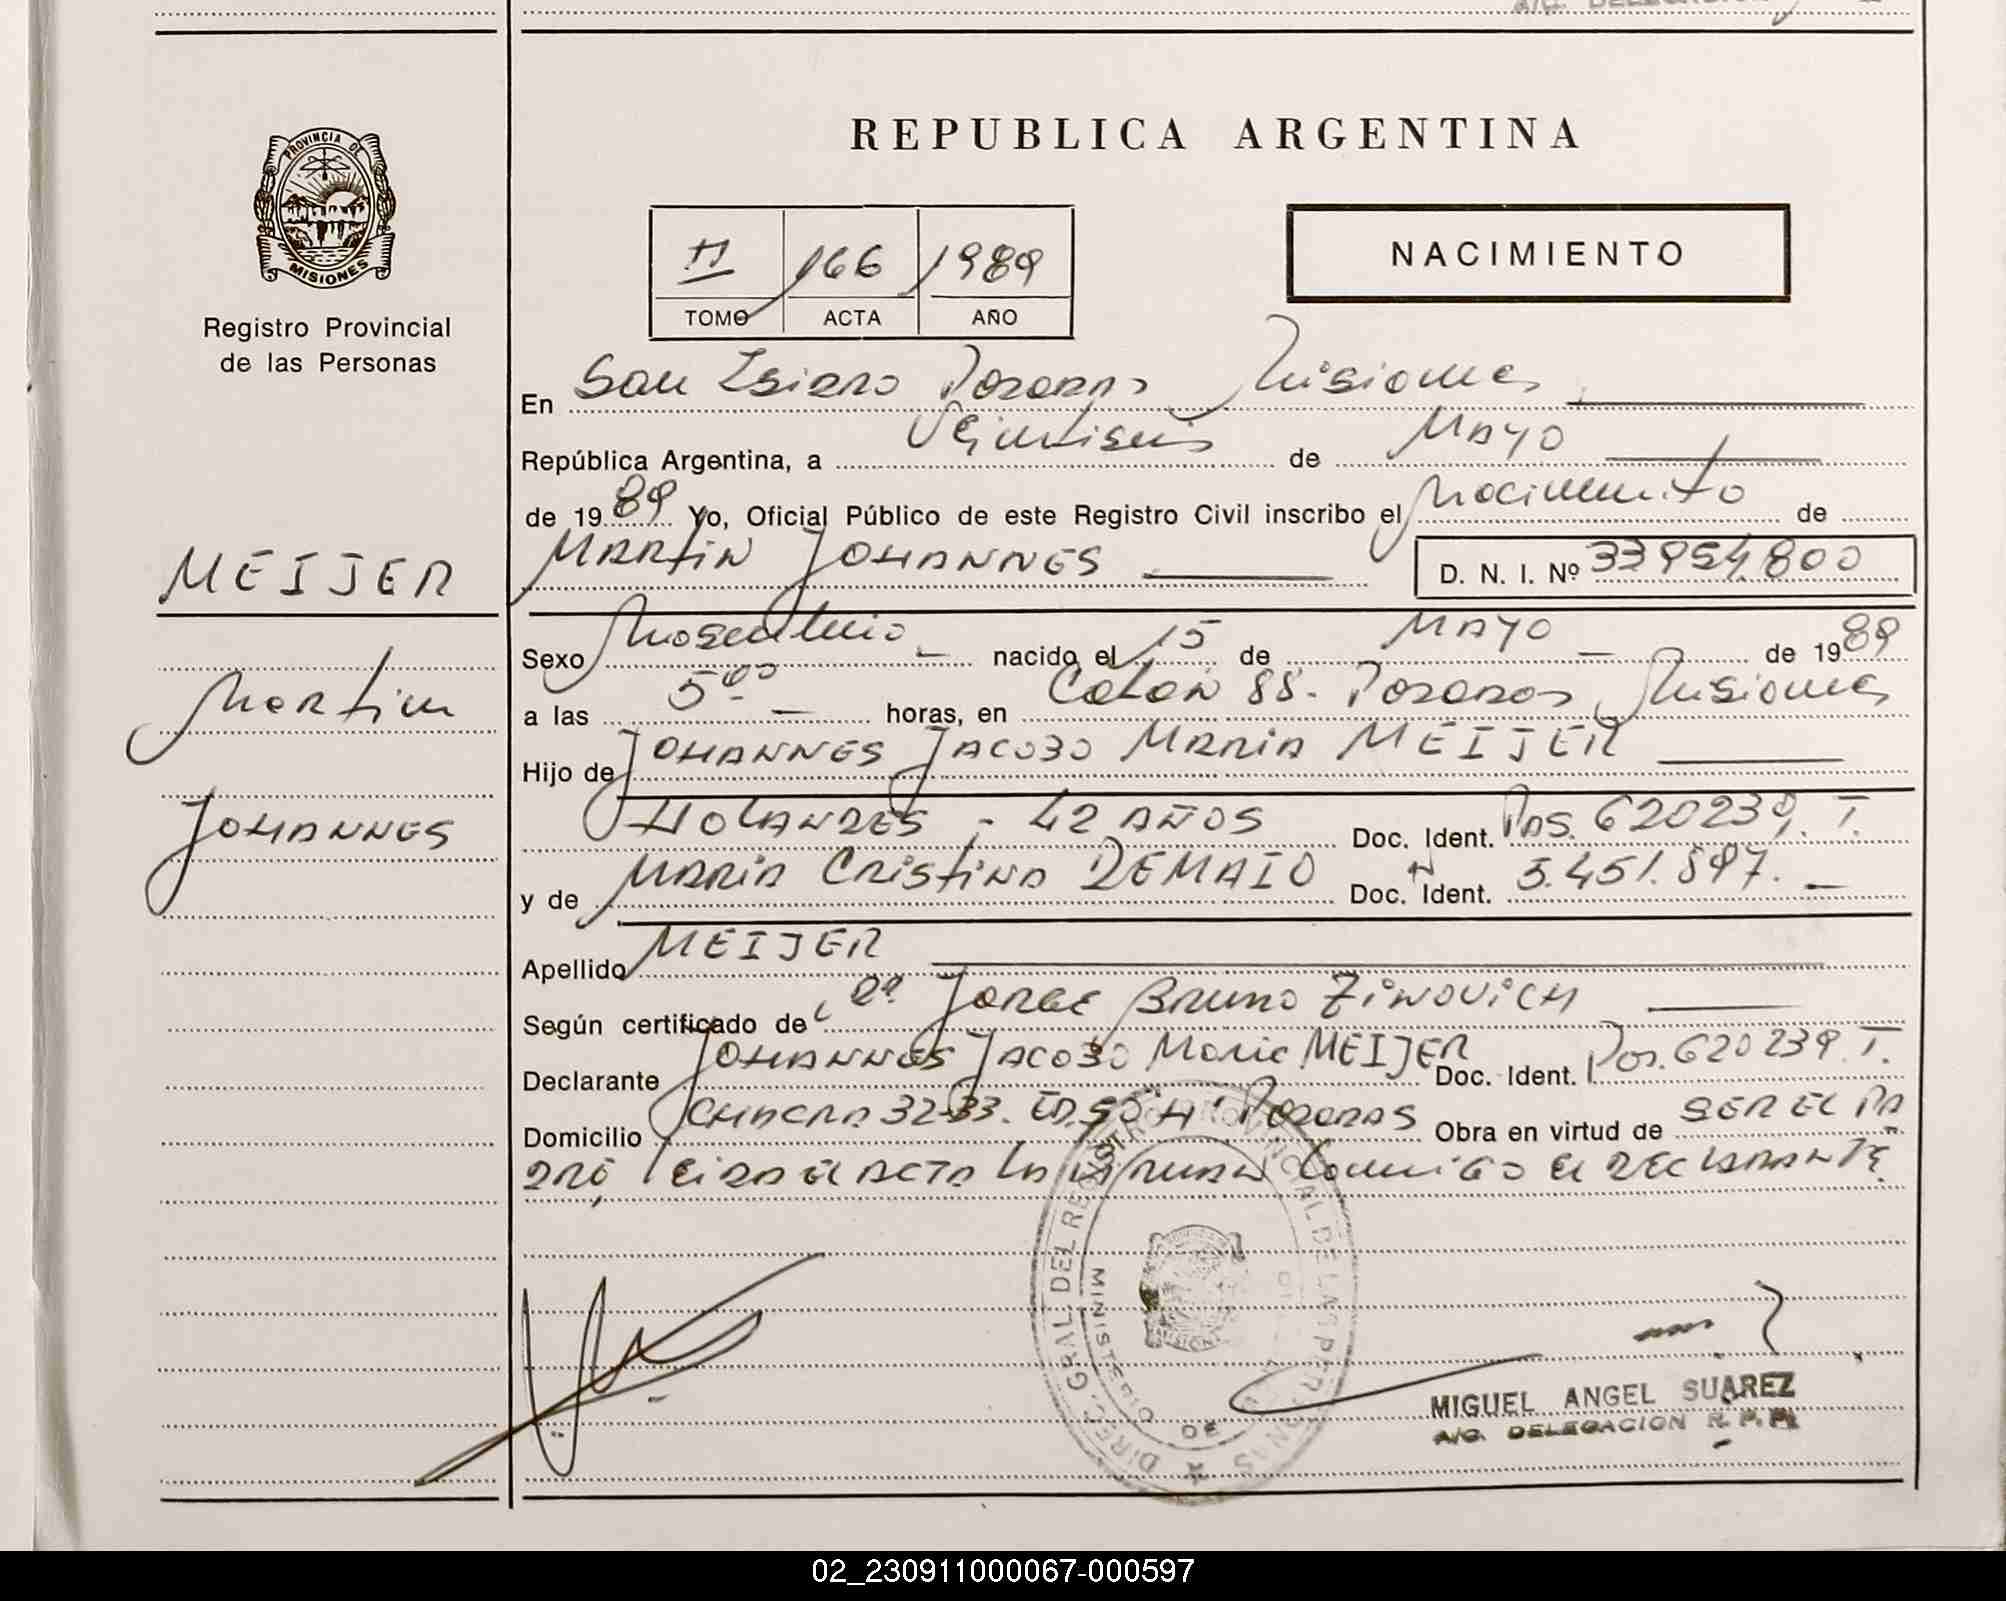 REPUBLICA ARGENTINA
PROVINCIA DE
MISIONES
Registro Provincial
de las Personas
II 166 1989
TOMO ACTA AÑO
NACIMIENTO
En San Isidro Posadas Misiones
República Argentina, a Veintiseis de Mayo
de 1989 Yo, Oficial Público de este Registro Civil inscribo el Nacimiento de
MARTIN JOHANNES D. N. I. Nº 33954.800
MEIJER
Martin
JOHANNES
Sexo Masculino nacido el 15 de MAYO de 1989
a las 5 horas, en COLON 88. Posadas Misiones
Hijo de JOHANNES JACOBO MARIA MEIJER
HOLANDES - 42 AÑOS Doc. Ident. PAS. 620239. T.
y de MARIA CRISTINA DEMAIO Doc. Ident. 5.451.897.
Apellido MEIJER
Según certificado de Dr JORGE BRUNO ZINOVICH
Declarante JOHANNES JACOBO Maria MEIJER Doc. Ident. Pas. 620239. T.
Domicilio CHACRA 32-33. ED. POSADAS Obra en virtud de SER EL PA
DRE, LEIDA EL ACTA LA FIRMAN Conmigo El DECLARANTE
DIREC. GRAL DEL REGISTRO PROVINCIAL DE LAS PERSONAS
MINISTERIO DE
MIGUEL ANGEL SUAREZ
A/C. DELEGACION R. P. P.
02_230911000067-000597